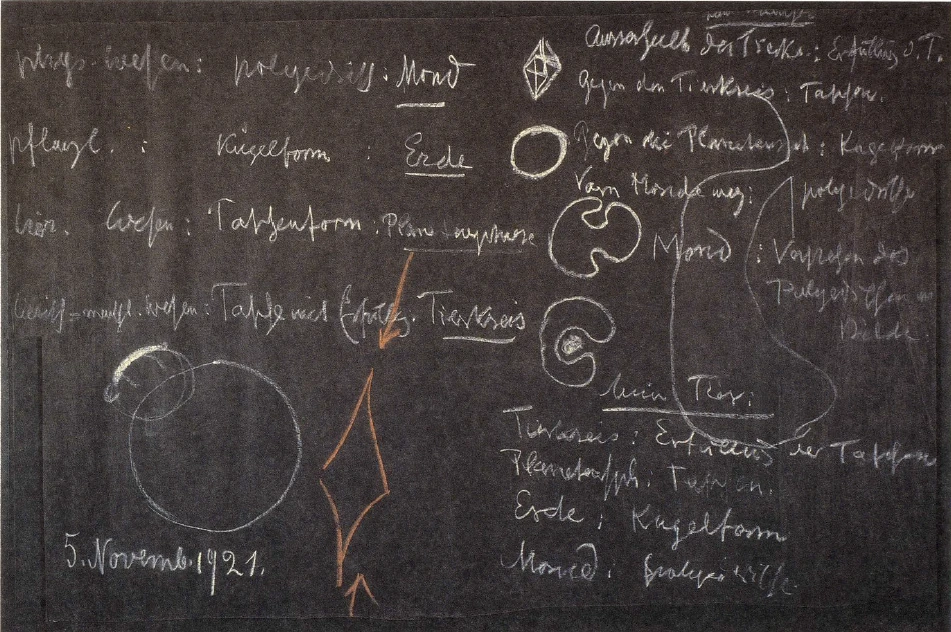 phys. Wesen: polyedrisch: Mond
pflanzl. : Kugelform : Erde
tier. Wesen: Taschenform: Planetensphäre
Wesen: Tasche mit Erfüllg. Tierkreis
5. Novemb. 1921.
beim Menschen
Ausserhalb des Tierkr.: Erfüllung d. T.
Gegen den Tierkreis: Taschen.
Gegen die Planetensph: Kugelform
Vom Monde weg: polyedrische
Mond : Vergehen des
Polyedrischen im
Beim Tier:
Tierkreis: Erfüllung der Taschen
Planetensph. Taschen.
Erde: Kugelform
Mond: polyedrische